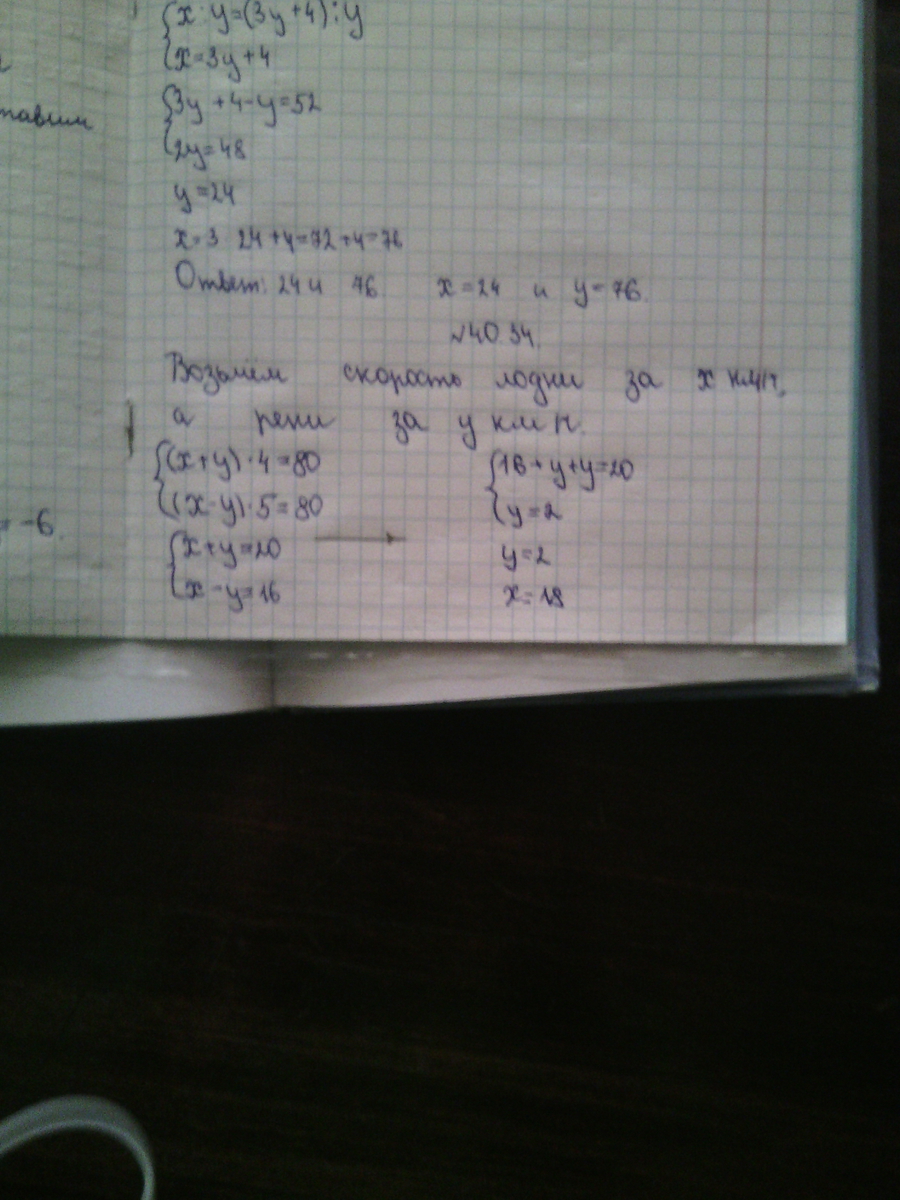 тавим
= -6.
{ x : y = (3y + 4) : y
{ x = 3y + 4
{ 3y + 4 - y = 52
{ 2y = 48
y = 24
x = 3 · 24 + 4 = 72 + 4 = 76
Ответ: 24 и 76 x = 24 и y = 76.
№40.34.
Возьмём скорость лодки за x км/ч,
а реки за y км/ч.
{ (x + y) · 4 = 80
{ (x - y) · 5 = 80
{ x + y = 20
{ x - y = 16
→
{ 16 + y + y = 20
{ y = 2
y = 2
x = 18